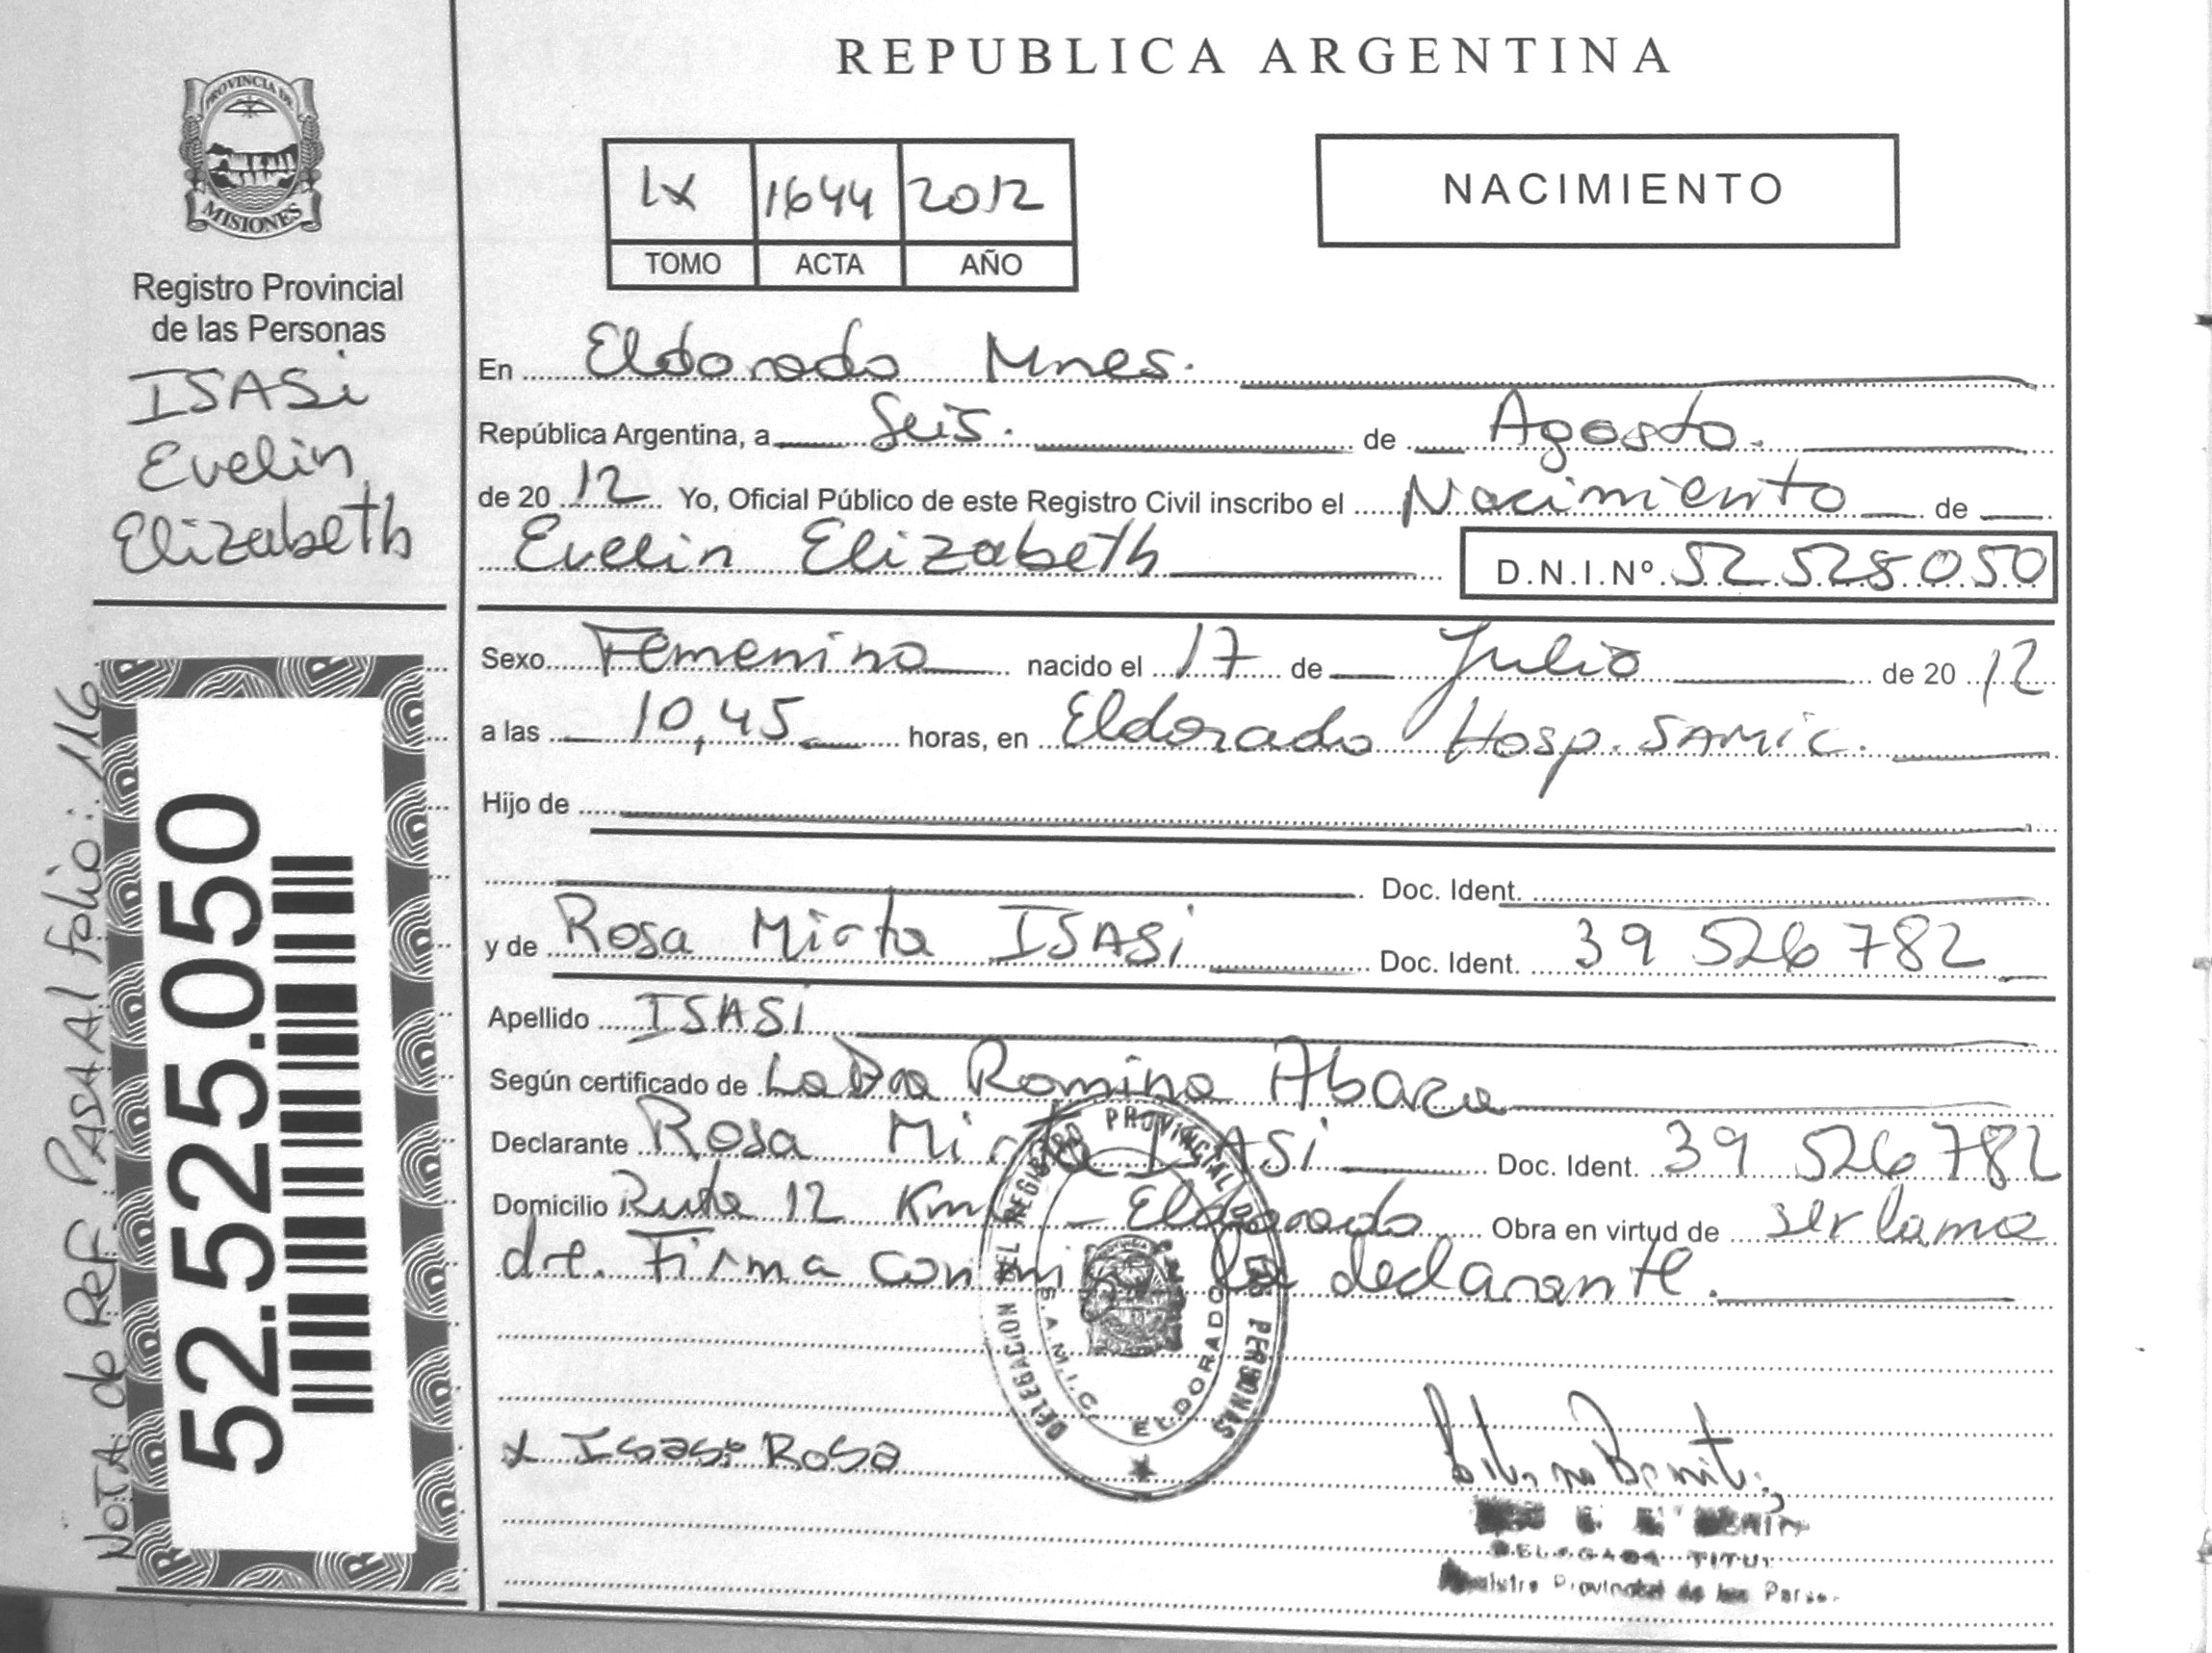 REPUBLICA ARGENTINA
PROVINCIA DE
MISIONES
Registro Provincial
de las Personas
ISASi
Evelin
Elizabeth
NOTA de Ref. PASA Al folio: 116
52.525.050
IX 1644 2012
TOMO ACTA AÑO
NACIMIENTO
En Eldorado Mnes.
República Argentina, a Seis. de Agosto.
de 20 12 Yo, Oficial Público de este Registro Civil inscribo el Nacimiento de
Evelin Elizabeth D.N.I.Nº 52 525.050
Sexo Femenino nacido el 17 de Julio de 20 12
a las 10,45 horas, en Eldorado Hosp. SAMIC.
Hijo de
Doc. Ident.
y de Rosa Mirta ISASi Doc. Ident. 39 526 782
Apellido ISASi
Según certificado de La Dra Romina Abaza
Declarante Rosa Mirta ISASi Doc. Ident. 39 526 782
Domicilio Ruta 12 Km - Eldorado Obra en virtud de ser la ma
dre. Firma conmigo la declarante.
DELEGACION DEL REGISTRO PROVINCIAL DE LAS PERSONAS
S.A.M.I.C. ELDORADO
x Isasi Rosa
DELEGADA TITU
Registro Provincial de las Perso